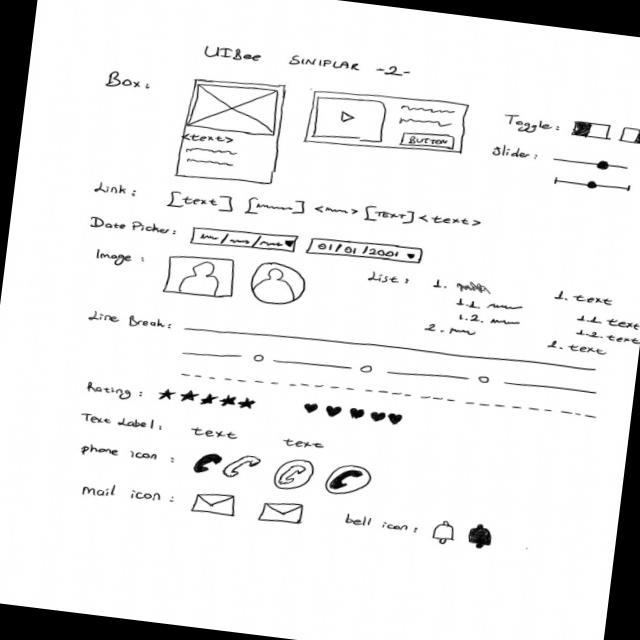 UIBee SINIFLAR -2-
Box:
<text>
BUTTON
Toggle:
Slider:
Link: [text] [TEXT] <text>
Date Picker: 01/01/2001
Image:
List: 1. 1. text
1.1. 1.1 text
1.2. 1.2. text
2. 2. text
Line Break:
Rating:
Text Label: text text
phone icon:
mail icon:
bell icon: